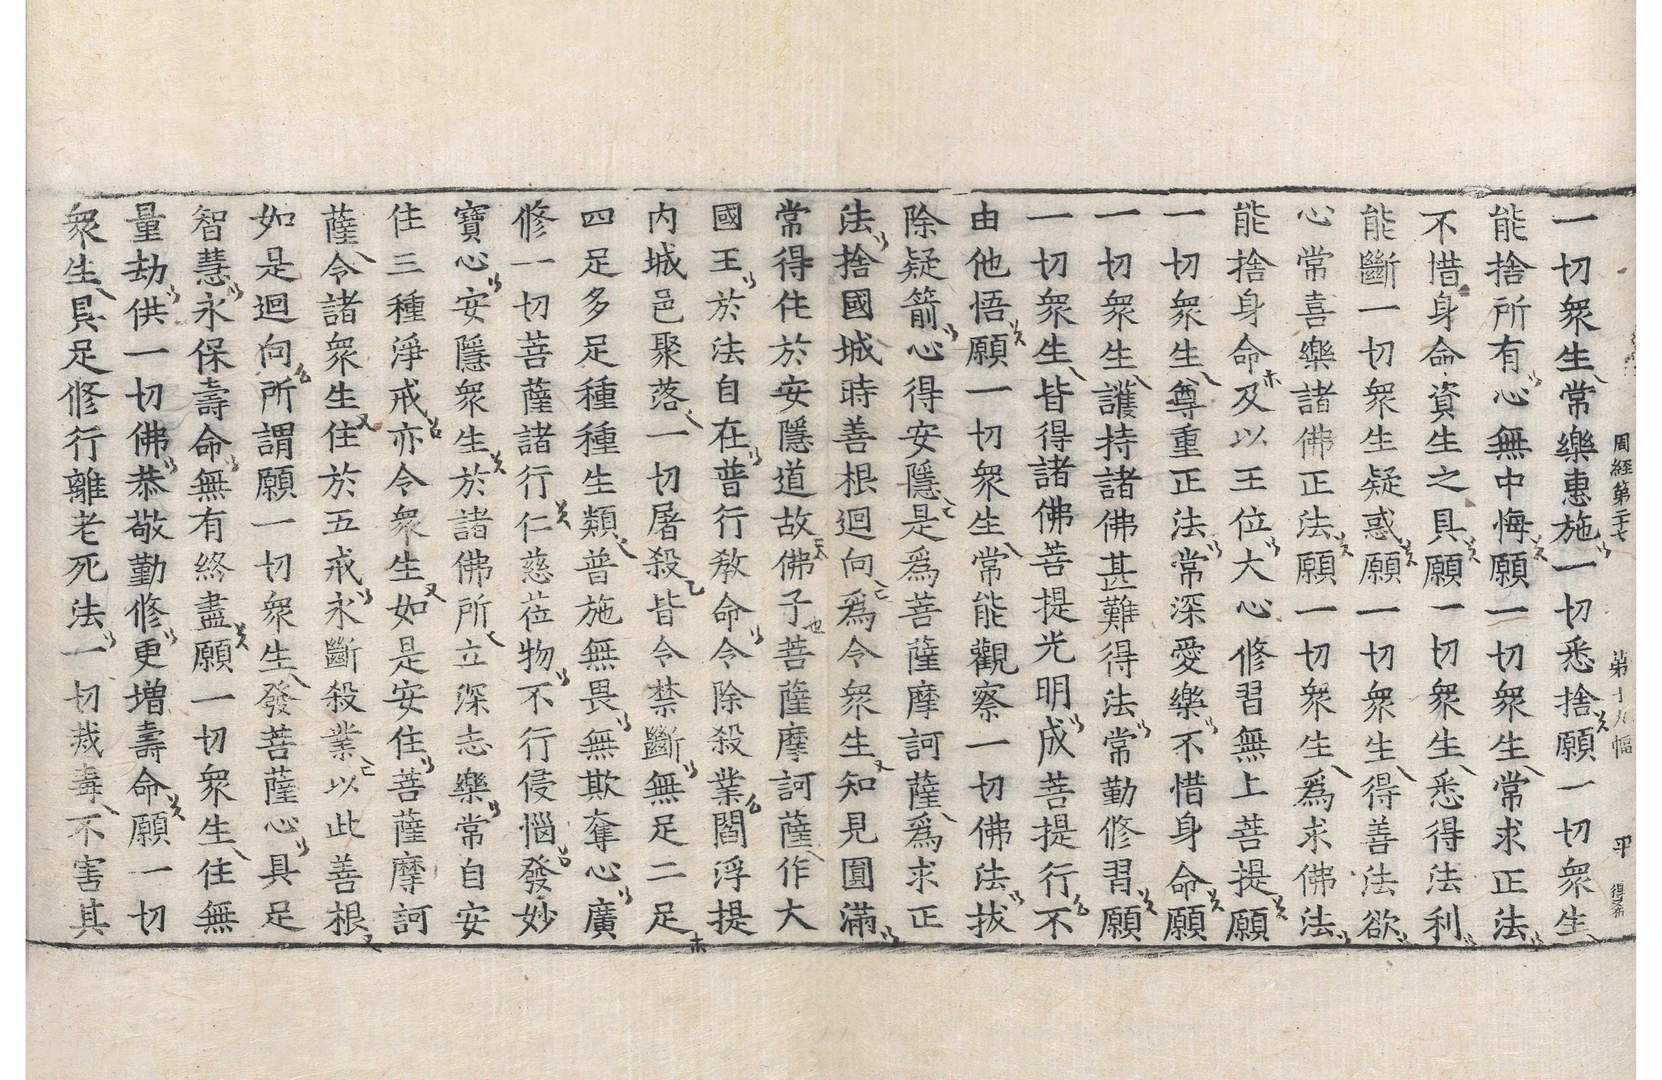 周經第二十七 第十九幅 平 得
一切衆生常樂惠施一切悉捨願一切衆生
能捨所有心無中悔願一切衆生常求正法
不惜身命資生之具願一切衆生悉得法利
能斷一切衆生疑惑願一切衆生得善法欲
心常喜樂諸佛正法願一切衆生爲求佛法
能捨身命及以王位大心修習無上菩提願
一切衆生尊重正法常深愛樂不惜身命願
一切衆生護持諸佛甚難得法常勤修習願
一切衆生皆得諸佛菩提光明成菩提行不
由他悟願一切衆生常能觀察一切佛法拔
除疑箭心得安隱是爲菩薩摩訶薩爲求正
法捨國城時善根迴向爲令衆生知見圓滿
常得住於安隱道故佛子菩薩摩訶薩作大
國王於法自在普行教命令除殺業閻浮提
内城邑聚落一切屠殺皆令禁斷無足二足
四足多足種種生類普施無畏無欺奪心廣
修一切菩薩諸行仁慈莅物不行侵惱發妙
寶心安隱衆生於諸佛所立深志樂常自安
住三種淨戒亦令衆生如是安住菩薩摩訶
薩令諸衆生住於五戒永斷殺業以此善根
如是迴向所謂願一切衆生發菩薩心具足
智慧永保壽命無有終盡願一切衆生住無
量劫供一切佛恭敬勤修更增壽命願一切
衆生具足修行離老死法一切災毒不害其